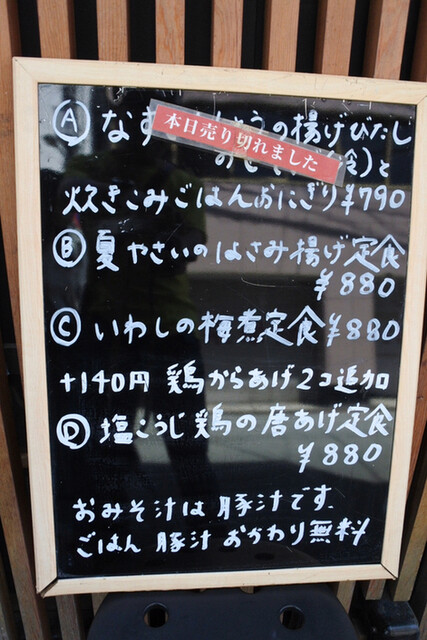 Ⓐ なす しょうの揚げびたし
本日売り切れました
食)と
炊きこみごはんおにぎり ¥790
Ⓑ 夏やさいのはさみ揚げ定食
¥880
Ⓒ いわしの梅煮定食 ¥880
+140円 鶏からあげ2コ追加
Ⓓ 塩こうじ鶏の唐あげ定食
¥880
おみそ汁は豚汁です。
ごはん 豚汁 おかわり無料